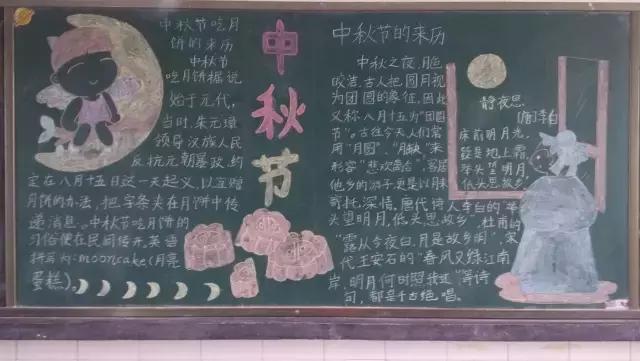 中秋节吃月
饼的来历
中秋节
吃月饼据说
始于元代,
当时,朱元璋
领导汉族人民
反抗元朝暴政,约
定在八月十五日这一天起义,以互赠
月饼的办法,把字条夹在月饼中传
递消息。中秋节吃月饼的
习俗便在民间传开,英语
拼写为:mooncake(月亮
蛋糕)。
中
秋
节
中秋节的来历
中秋之夜,月色
皎洁,古人把圆月视
为团圆的象征,因此
又称八月十五为“团圆
节”。古往今天人们常
用“月圆”、“月缺”来
形容“悲欢离合”,客居
他乡的游子更是以月来
寄托深情。唐代诗人李白的“举
头望明月,低头思故乡”,杜甫的
“露从今夜白,月是故乡明”,宋
代王安石的“春风又绿江南
岸,明月何时照我还”等诗
句,都是千古绝唱。
静夜思
[唐]李白
床前明月光,
疑是地上霜,
举头望明月,
低头思故乡。